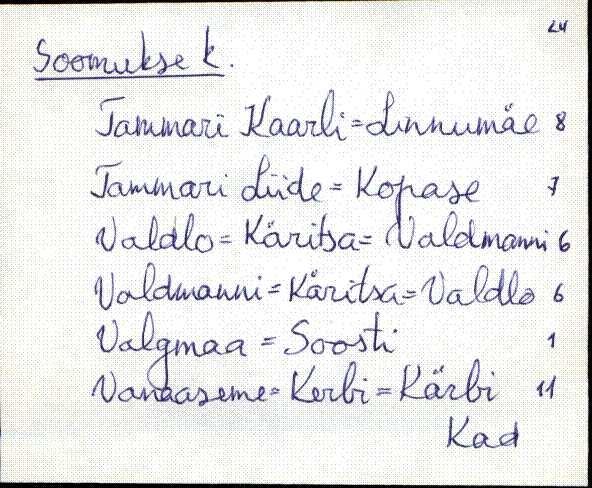 24
Soomukse k.
Tammari Kaarli = Linnumäe 8
Tammari Liide = Kopase 7
Valdlo = Käritsa = Valdmanni 6
Valdmanni = Käritsa = Valdlo 6
Valgmaa = Soosti 1
Vanaaseme = Kerbi = Kärbi 11
Kad